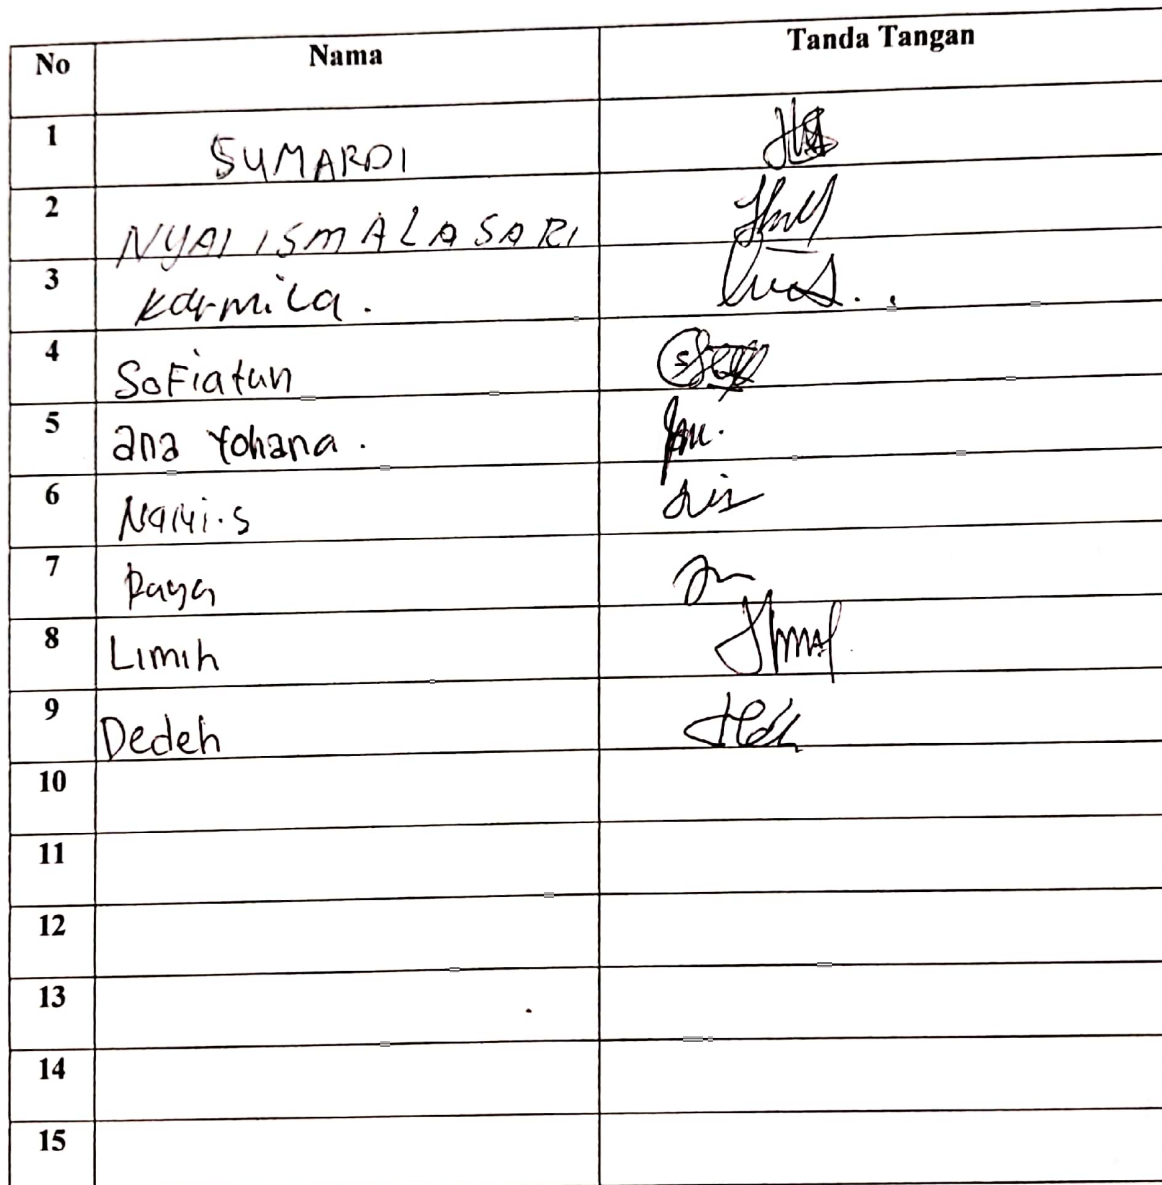 No Nama Tanda Tangan
1 SUMARDI
2 NYAI ISMALASARI
3 Karmila.
4 SoFiatun
5 ana Yohana.
6
7
8 Limih
9 Dedeh
10
11
12
13
14
15